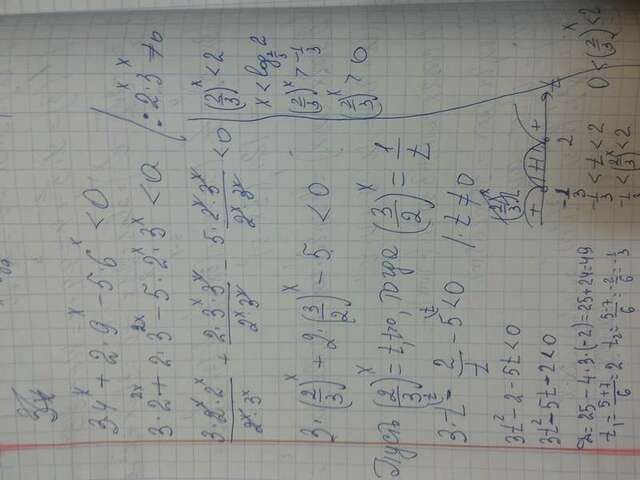 3·4ˣ + 2·9ˣ - 5·6ˣ < 0
3·2²ˣ + 2·3²ˣ - 5·2ˣ·3ˣ < 0 | : 2ˣ·3ˣ ≠ 0
3·2ˣ·2ˣ/2ˣ·3ˣ + 2·3ˣ·3ˣ/2ˣ·3ˣ - 5·2ˣ·3ˣ/2ˣ·3ˣ < 0
3·(2/3)ˣ + 2·(3/2)ˣ - 5 < 0
Пусть (2/3)ˣ = t, t>0, тогда (3/2)ˣ = 1/t
3·t - 2/t - 5 < 0 |·t ≠ 0
3t² - 2 - 5t < 0
3t² - 5t - 2 < 0
D = 25 - 4·3·(-2) = 25 + 24 = 49
t₁ = 5+7/6 = 2. t₂ = 5-7/6 = -2/6 = -1/3
+ + t
-1/3 2
-1/3 < t < 2
-1/3 < (2/3)ˣ < 2
(2/3)ˣ < 2
x < log₂/₃ 2
(2/3)ˣ > -1/3
(2/3)ˣ > 0
0 < (2/3)ˣ < 2